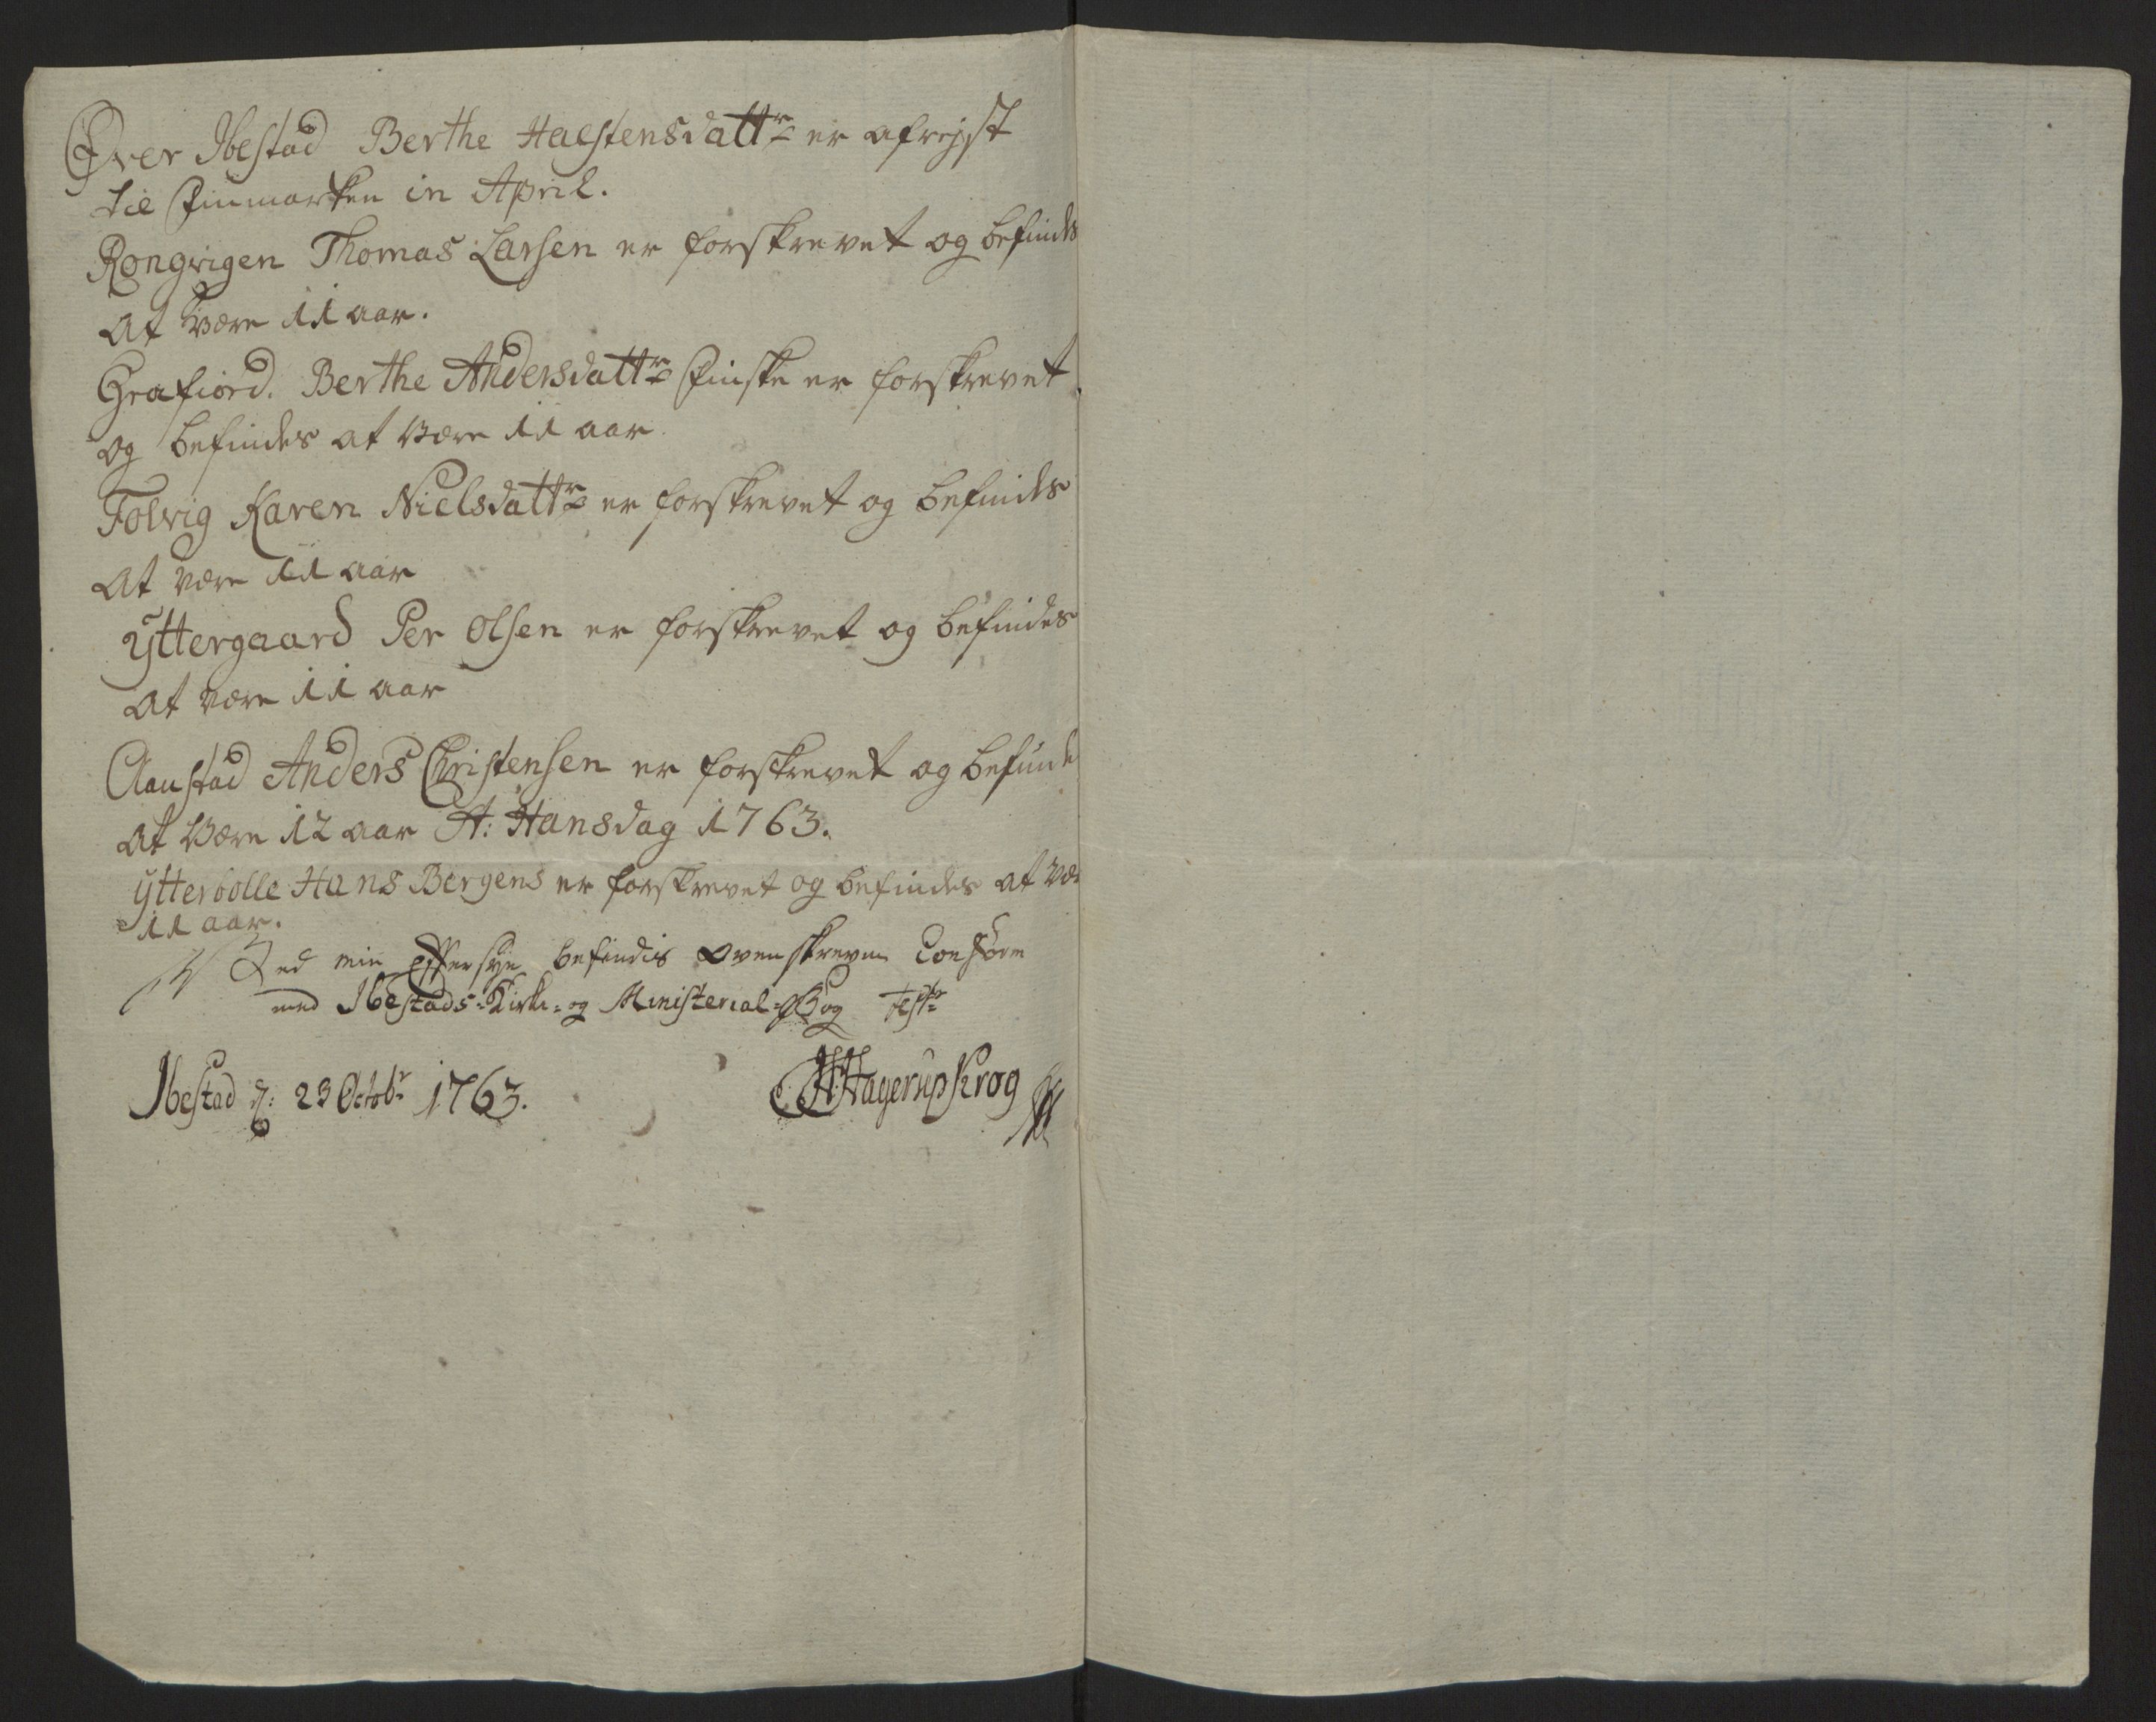 Øver Ibestad Berthe Halstensdattr er afrejst
til Finmarken in April.
Rongvigen Thomas Larsen er forskrevet og befindes
at være 11 aar.
Grafiord. Berthe Andersdattr Finske er forskrevet
og befindes at være 11 aar
Folvig Karen Nielsdattr er forskrevet og befindes
at være 11 aar
Yttergaard Per Olsen er forskrevet og befindes
at være 11 aar
Aanstad Anders Christensen er forskrevet og befunde
at være 12 aar St: Hansdag 1763.
Ytterbolle Hans Bergens er forskrevet og befindes at væ
11 aar.
Ved min Eftersyn befindis ovenskrevne Conform
med Ibestads-Kirke- og Ministerial-Bog
Ibestad d: 23 Octobr 1763. HHagerup Krog